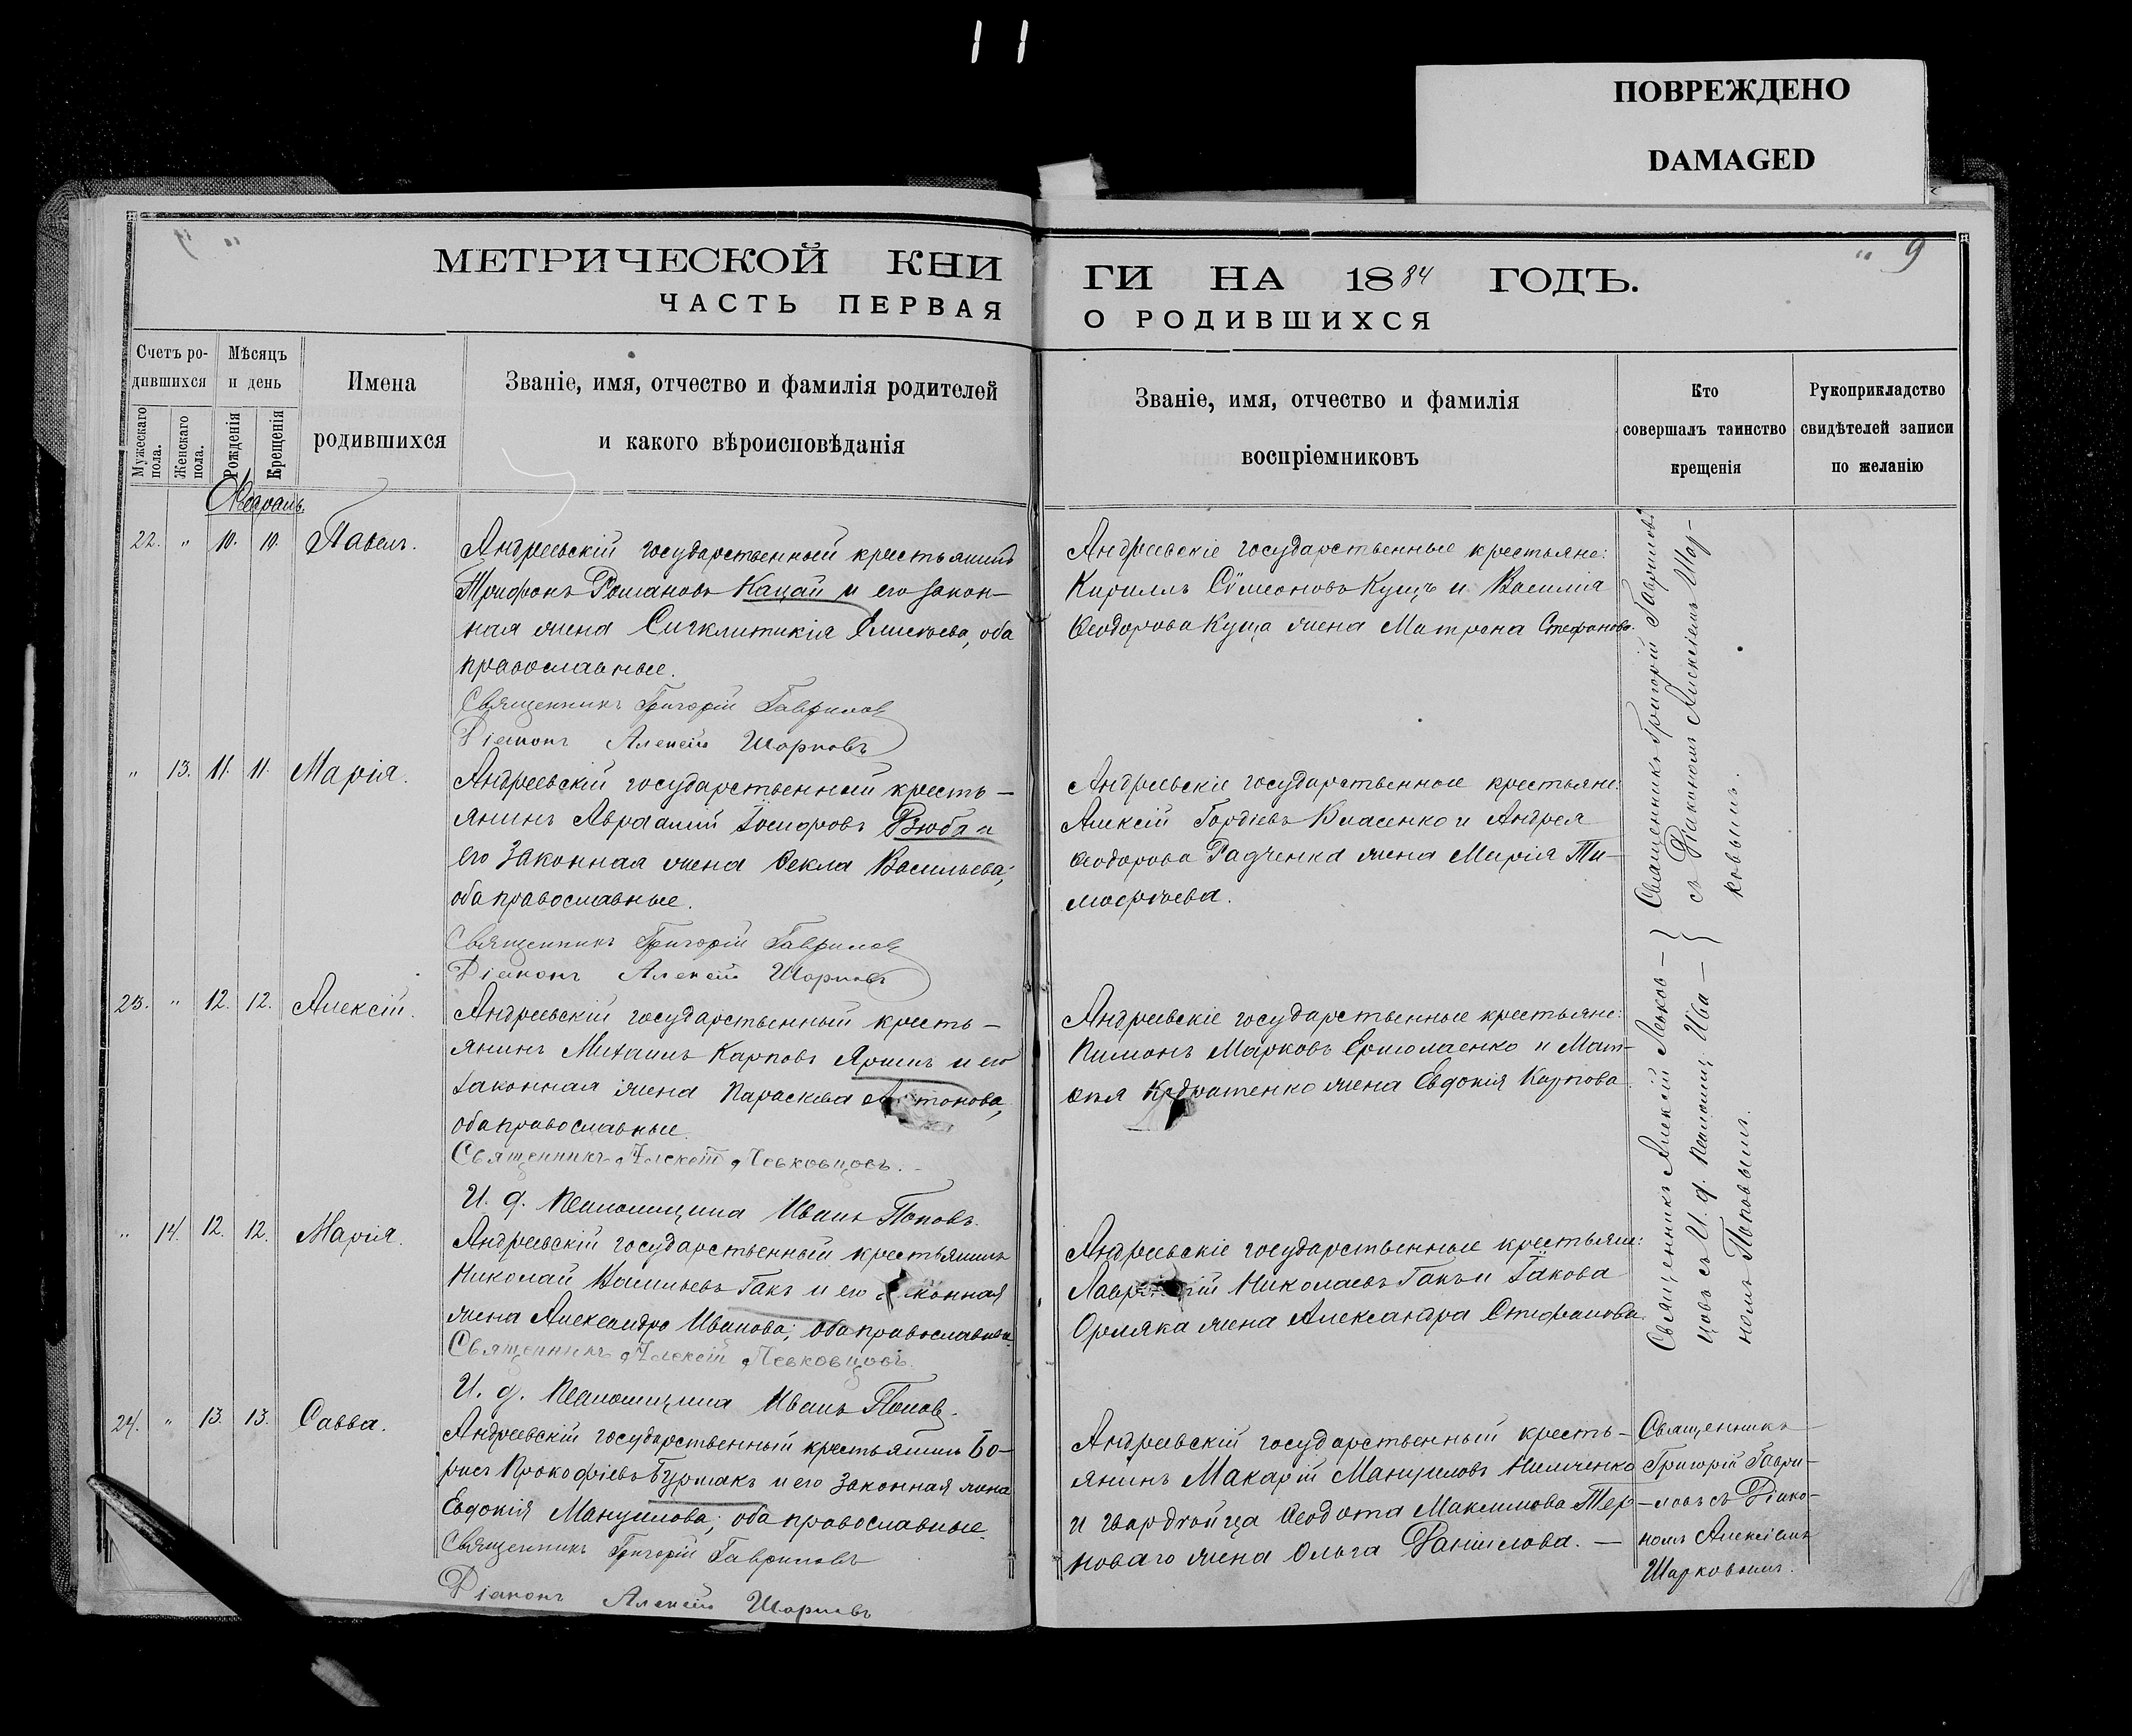 11
ПОВРЕЖДЕНО
DAMAGED
" 9
МЕТРИЧЕСКОЙ КНИ
ЧАСТЬ ПЕРВАЯ
ГИ НА 1884 ГОДЪ.
О РОДИВШИХСЯ
Счетъ ро-
дившихся
Мужескаго пола.
Женскаго пола.
Мѣсяцъ
и день
Рожденія
Крещенія
Имена
родившихся
Званіе, имя, отчество и фамилія родителей
и какого вѣроисповѣданія
Званіе, имя, отчество и фамилія
воспріемниковъ
Кто
совершалъ таинство
крещенія
Рукоприкладство
свидѣтелей записи
по желанію
Февраль.
22. " 10. 10. Павелъ.
Андреевскій государственный крестьянинъ
Трифонъ Романовъ Кацай и его закон-
ная жена Сигклитикія Елисѣева, оба
православные.
Священникъ Григорій Гавриловъ
Діаконъ Алексѣй Шарковъ
Андреевскіе государственные крестьяне:
Кириллъ Сѵмеоновъ Кущъ и Василія
Ѳеодорова Куща жена Матрона Стефанова.
" 13. 11. 11. Марія.
Андреевскій государственный кресть-
янинъ Авраамій Іосифовъ Дзюба и
его законная жена Ѳекла Васильева;
оба православные.
Священникъ Григорій Гавриловъ
Діаконъ Алексѣй Шарковъ
Андреевскіе государственные крестьяне:
Алексій Гордіевъ Власенко и Андрея
Ѳеодорова Радченка жена Марія Ти-
моѳѣева.
Священникъ Григорій Гавриловъ
съ Діакономъ Алексіемъ Шар-
ковымъ.
23. " 12. 12. Алексій.
Андреевскій государственный кресть-
янинъ Михаилъ Карповъ Яришъ и его
законная жена Параскева Антонова,
оба православные.
Священникъ Алексѣй Левковцовъ.
И. д. Псаломщика Иванъ Поповъ.
Андреевскіе государственные крестьяне:
Пименъ Марковъ Ермолаенко и Мат-
ѳея жена Евдокія Карпова.
" 14. 12. 12. Марія.
Андреевскій государственный крестьянинъ
Николай Васильевъ Гакъ и его законная
жена Александра Иванова; оба православные.
Священникъ Алексѣй Левковцовъ.
И. д. Псаломщика Иванъ Поповъ.
Андреевскіе государственные крестьяне:
Николаевъ Гакъ и Іакова
Орляка жена Александра Стефанова.
Священникъ Алексій Левков-
цовъ съ И. д. Псаломщ. Ива-
номъ Поповымъ.
24. " 13. 13. Савва.
Андреевскій государственный крестьянинъ Бо-
рисъ Прокофіевъ Бурмакъ и его законная жена
Евдокія Мануилова; оба православные.
Священникъ Григорій Гавриловъ
Діаконъ Алексѣй Шарковъ
Андреевскій государственный кресть-
янинъ Макарій Мануиловъ Нимченко
и гвардѣйца Ѳеодота Максимова Тер-
новаго жена Ольга Даніилова. -
Священникъ
Григорій Гаври-
ловъ съ Діако-
номъ Алексіемъ
Шарковымъ.